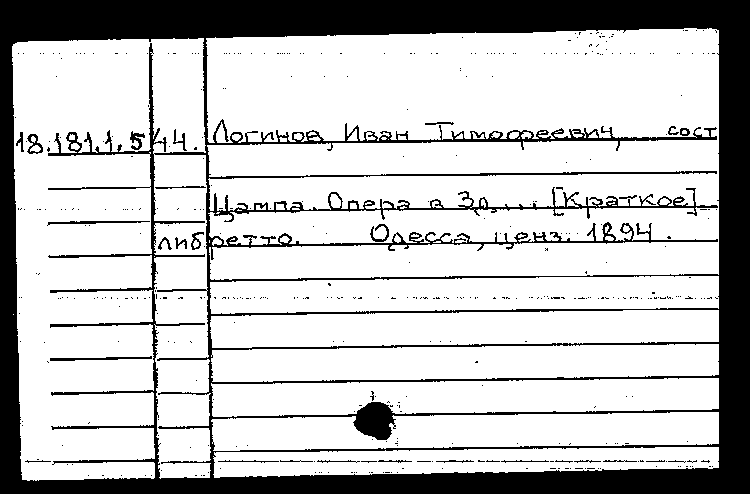 18.181.1.5/44. Логинов, Иван Тимофеевич, сост
Цампа. Опера в 3д.... [Краткое]
либретто. Одесса, ценз. 1894.